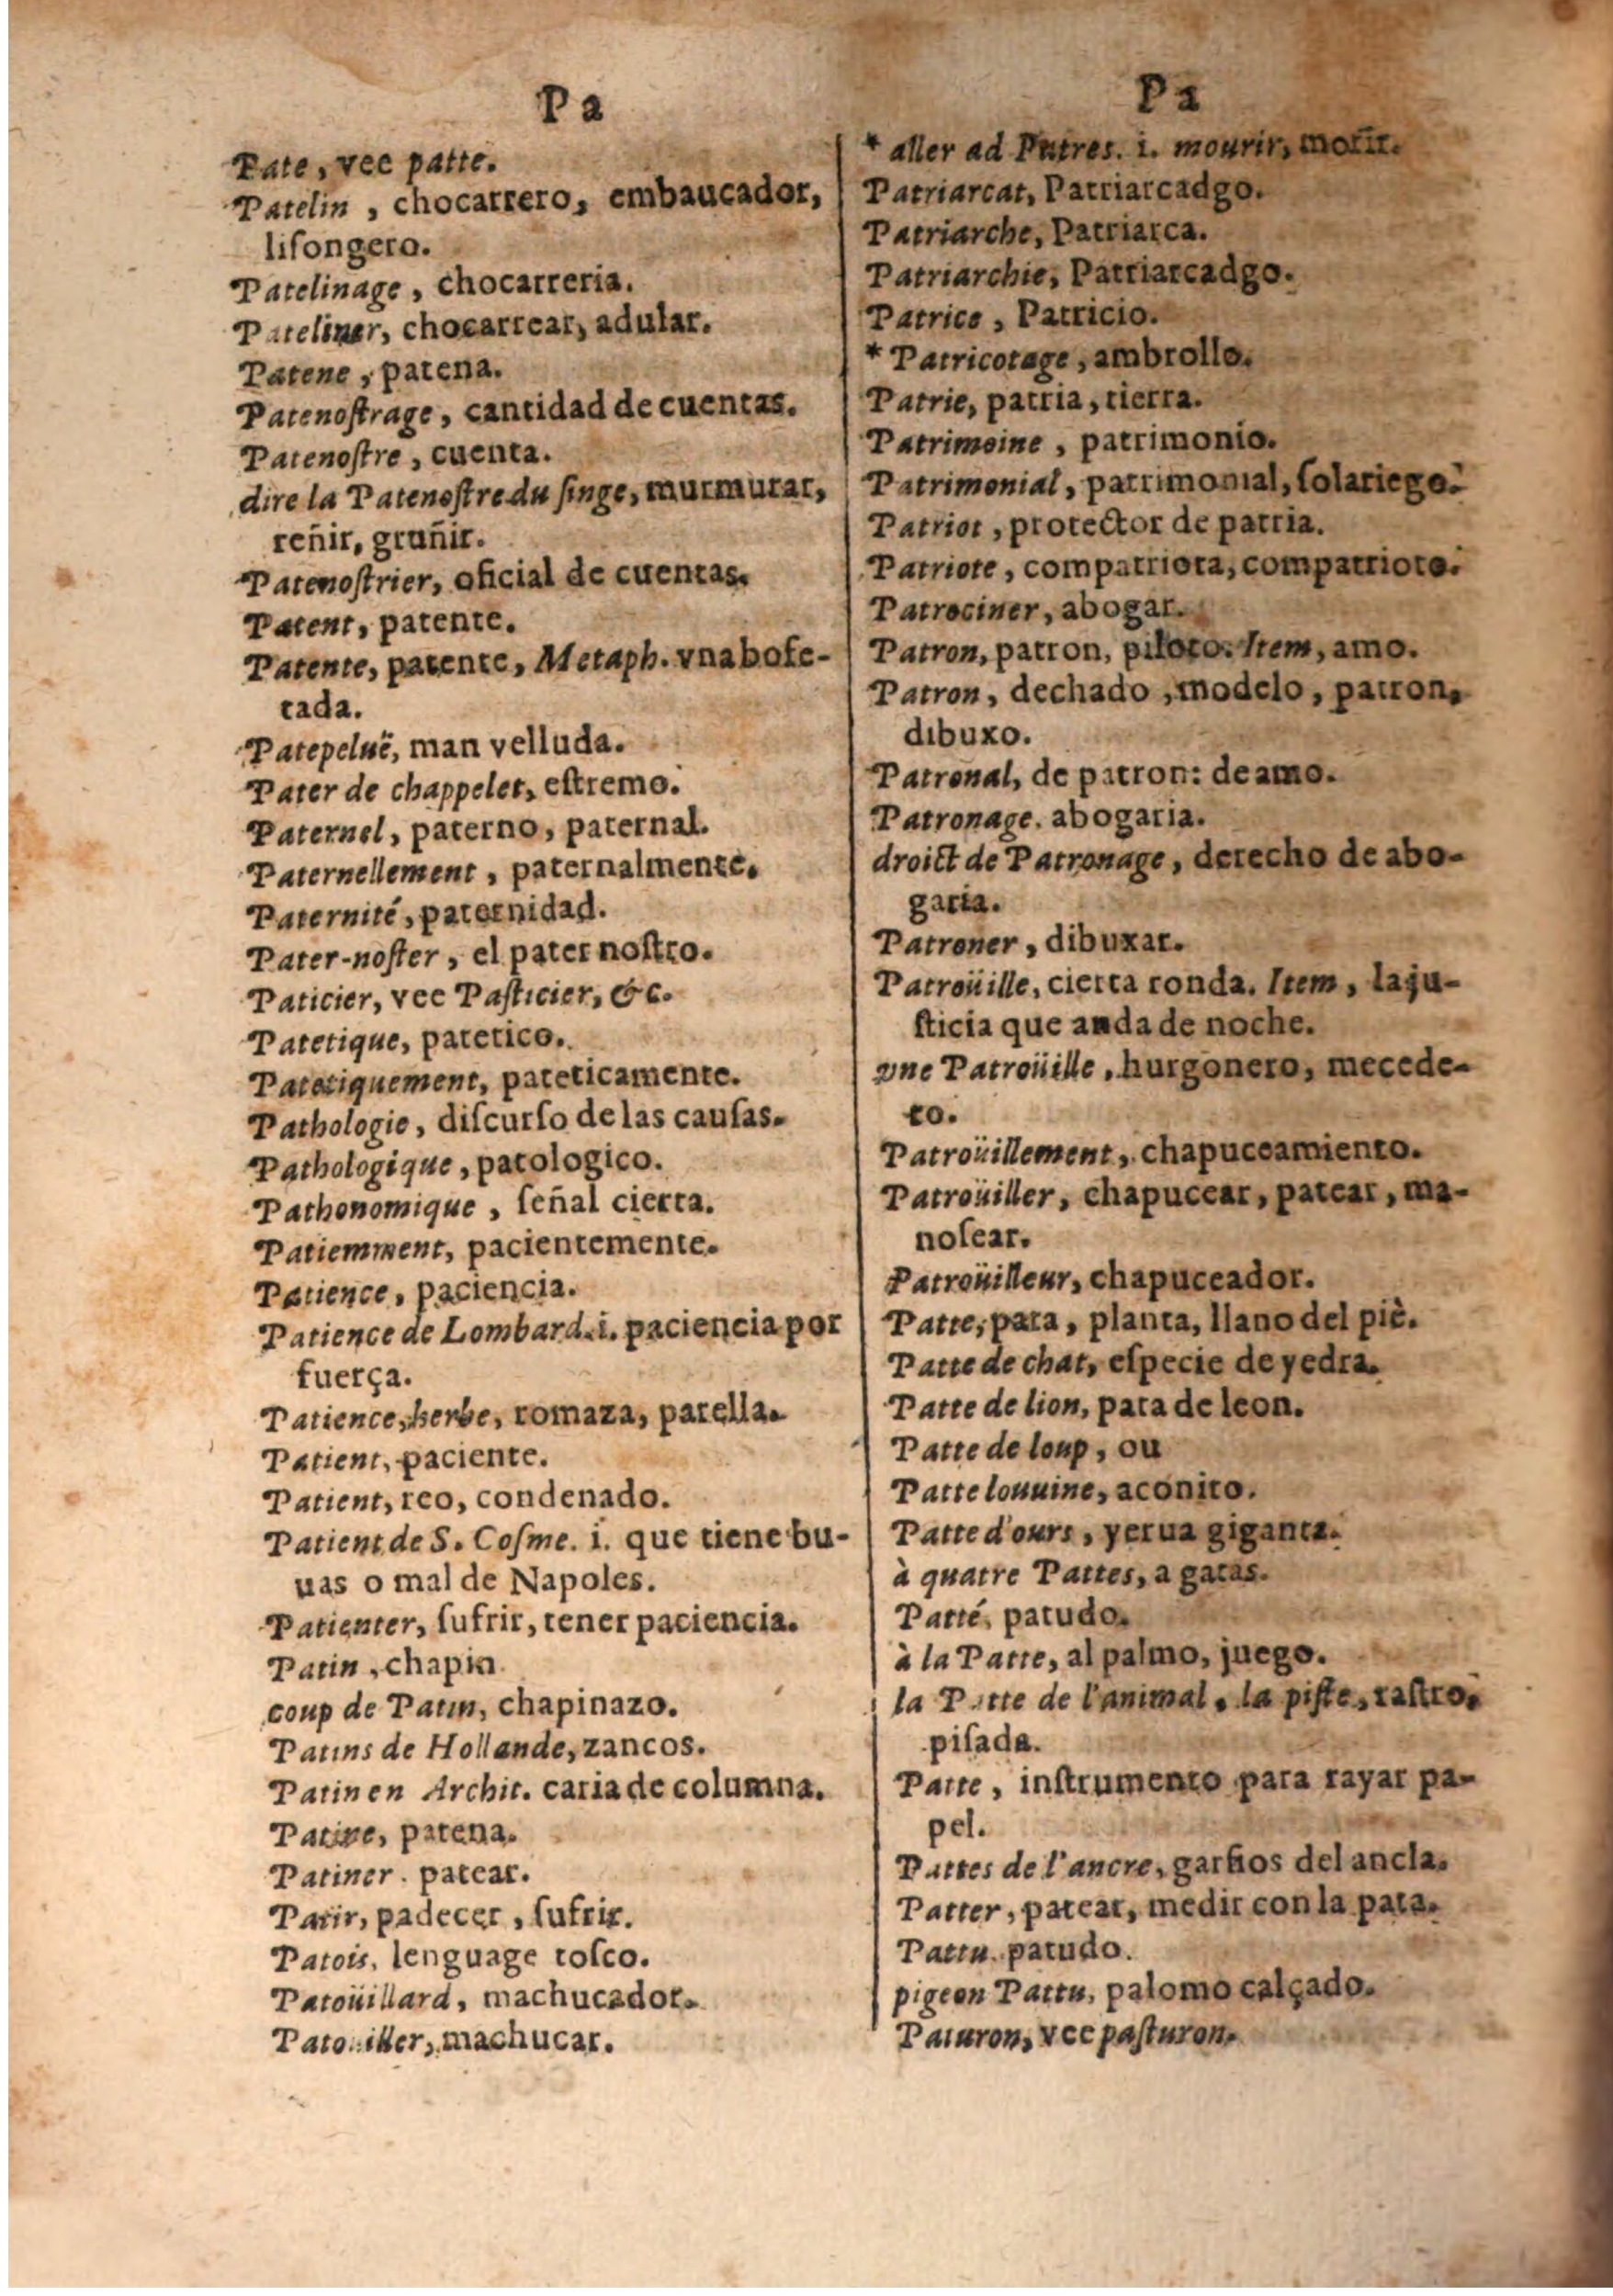 Pa
Pate, vee patte.
Patelin, chocarrero, embaucador,
liſongero.
Patelinage, chocarreria.
Pateliner, chocarrear, adular.
Patene, patena.
Patenoſtrage, cantidad de cuentas.
Patenoſtre, cuenta.
dire la Patenoſtre du ſinge, murmurar,
reñir, gruñir.
Patenoſtrier, oficial de cuentas.
Patent, patente.
Patente, patente, Metaph. vna bofe-
tada.
Patepeluë, man velluda.
Pater de chappelet, eſtremo.
Paternel, paterno, paternal.
Paternellement, paternalmente.
Paternité, paternidad.
Pater-noſter, el pater noſtro.
Paticier, vee Paſticier, &c.
Patetique, patetico.
Patetiquement, pateticamente.
Pathologie, diſcurſo de las cauſas.
Pathologique, patologico.
Pathonomique, ſeñal cierta.
Patiemment, pacientemente.
Patience, paciencia.
Patience de Lombard. i. paciencia por
fuerça.
Patience, herbe, romaza, parella.
Patient, paciente.
Patient, reo, condenado.
Patient de S. Coſme. i. que tiene bu-
uas o mal de Napoles.
Patienter, ſufrir, tener paciencia.
Patin, chapin
coup de Patin, chapinazo.
Patins de Hollande, zancos.
Patin en Archit. caria de columna.
Patine, patena.
Patiner. patear.
Patir, padecer, ſufrir.
Patois, lenguage toſco.
Patoüillard, machucador.
Patoüiller, machucar.
Pa
* aller ad Patres. i. mourir, morir.
Patriarcat, Patriarcadgo.
Patriarche, Patriarca.
Patriarchie, Patriarcadgo.
Patrice, Patricio.
* Patricotage, ambrollo.
Patrie, patria, tierra.
Patrimoine, patrimonio.
Patrimonial, patrimonial, ſolariego.
Patriot, protector de patria.
Patriote, compatriota, compatrioto.
Patrociner, abogar.
Patron, patron, piloto. Item, amo.
Patron, dechado, modelo, patron,
dibuxo.
Patronal, de patron: de amo.
Patronage. abogaria.
droict de Patronage, derecho de abo-
garia.
Patroner, dibuxar.
Patroüille, cierta ronda. Item, la ju-
ſticia que anda de noche.
vne Patroüille, hurgonero, mecede-
ro.
Patroüillement, chapuceamiento.
Patroüiller, chapucear, patear, ma-
noſear.
Patroüilleur, chapuceador.
Patte, pata, planta, llano del piè.
Patte de chat, eſpecie de yedra.
Patte de lion, pata de leon.
Patte de loup, ou
Patte louuine, aconito.
Patte d'ours, yerua giganta.
à quatre Pattes, a gatas.
Patté, patudo.
à la Patte, al palmo, juego.
la Patte de l'animal, la piſte, raſtro,
piſada.
Patte, inſtrumento para rayar pa-
pel.
Pattes de l'ancre, garfios del ancla.
Patter, patear, medir con la pata.
Pattu. patudo.
pigeon Pattu, palomo calçado.
Paturon, vee paſturon.